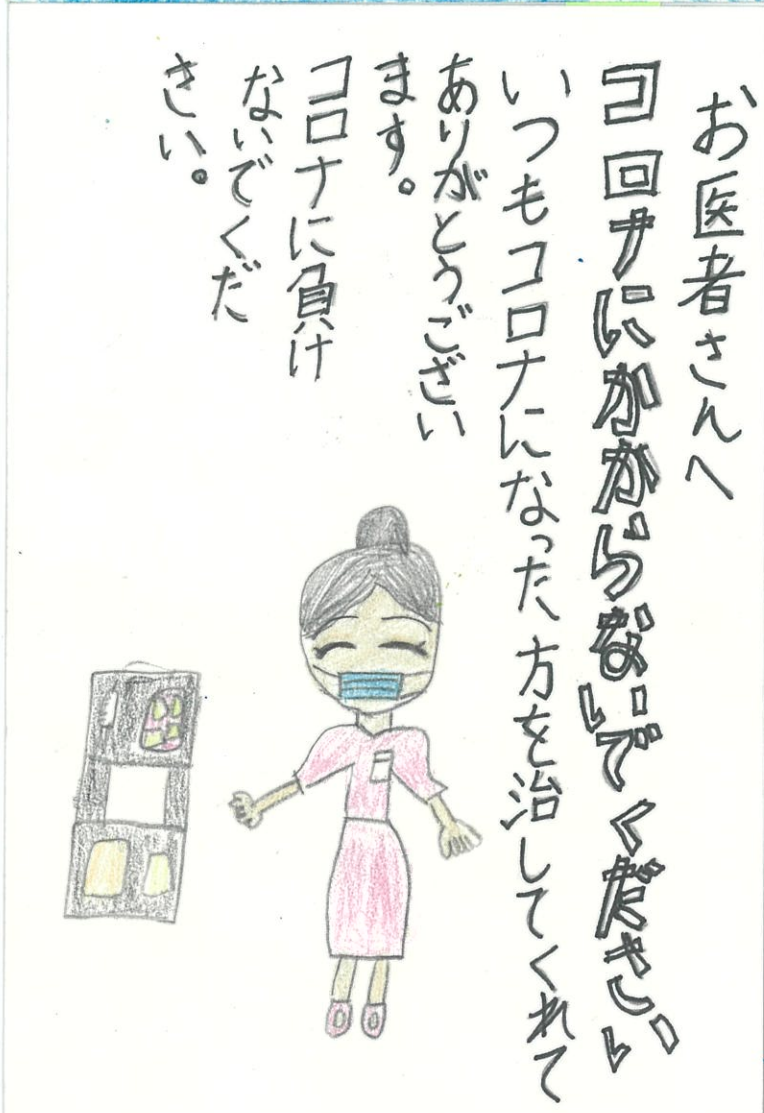 お医者さんへ
コロナにかからないでください
いつもコロナになった方を治してくれて
ありがとうござい
ます。
コロナに負け
ないでくだ
さい。